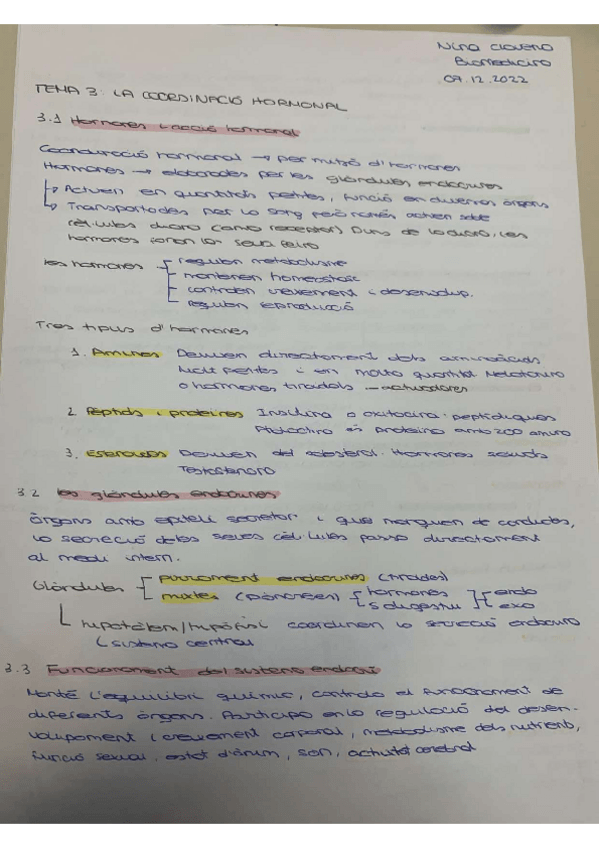 Biomedicina
07.12.2022
TEMA 3: LA COORDINACIÓ HORMONAL
3.1 Hormones i acció hormonal
Coordinació hormonal → per mitjà d'hormones
Hormones → elaborades per les glàndules endocrines
↳ Actuen en quantitats petites, funció en diversos òrgans
↳ Transportades per la sang però només actuen sobre
cèl·lules diana (amb receptor) Dins de la diana, les
hormones fan la seva feina
les hormones regulen metabolisme
mantenen homeostasi
controlen creixement i desenvolup.
regulen reproducció
Tres tipus d'hormones
1. Amines Deriven directament dels aminoàcids
Molt petites i en molta quantitat Melatonina
o hormones tiroidals
2. Pèptids i proteïnes Insulina o oxitocina: peptídiques
és proteïna amb 200 amino
3. Esteroides Deriven del colesterol. Hormones sexuals
Testosterona
3.2 les glàndules endocrines
òrgans amb epiteli secretor i que manquen de conductes,
la secreció de les seves cèl·lules passa directament
al medi intern.
Glàndules purament endocrines (tiroides)
mixtes (pàncrees) hormones endo
S.digestiu exo
↳ hipotàlem/hipòfisi coordinen la secreció endocrina
(sistema central
3.3 Funcionament del sistema endocrí
Manté l'equilibri químic, controla el funcionament de
diferents òrgans. Participa en la regulació del desen-
volupament i creixement corporal, metabolisme dels nutrients,
funció sexual, estat d'ànim, son, activitat cerebral